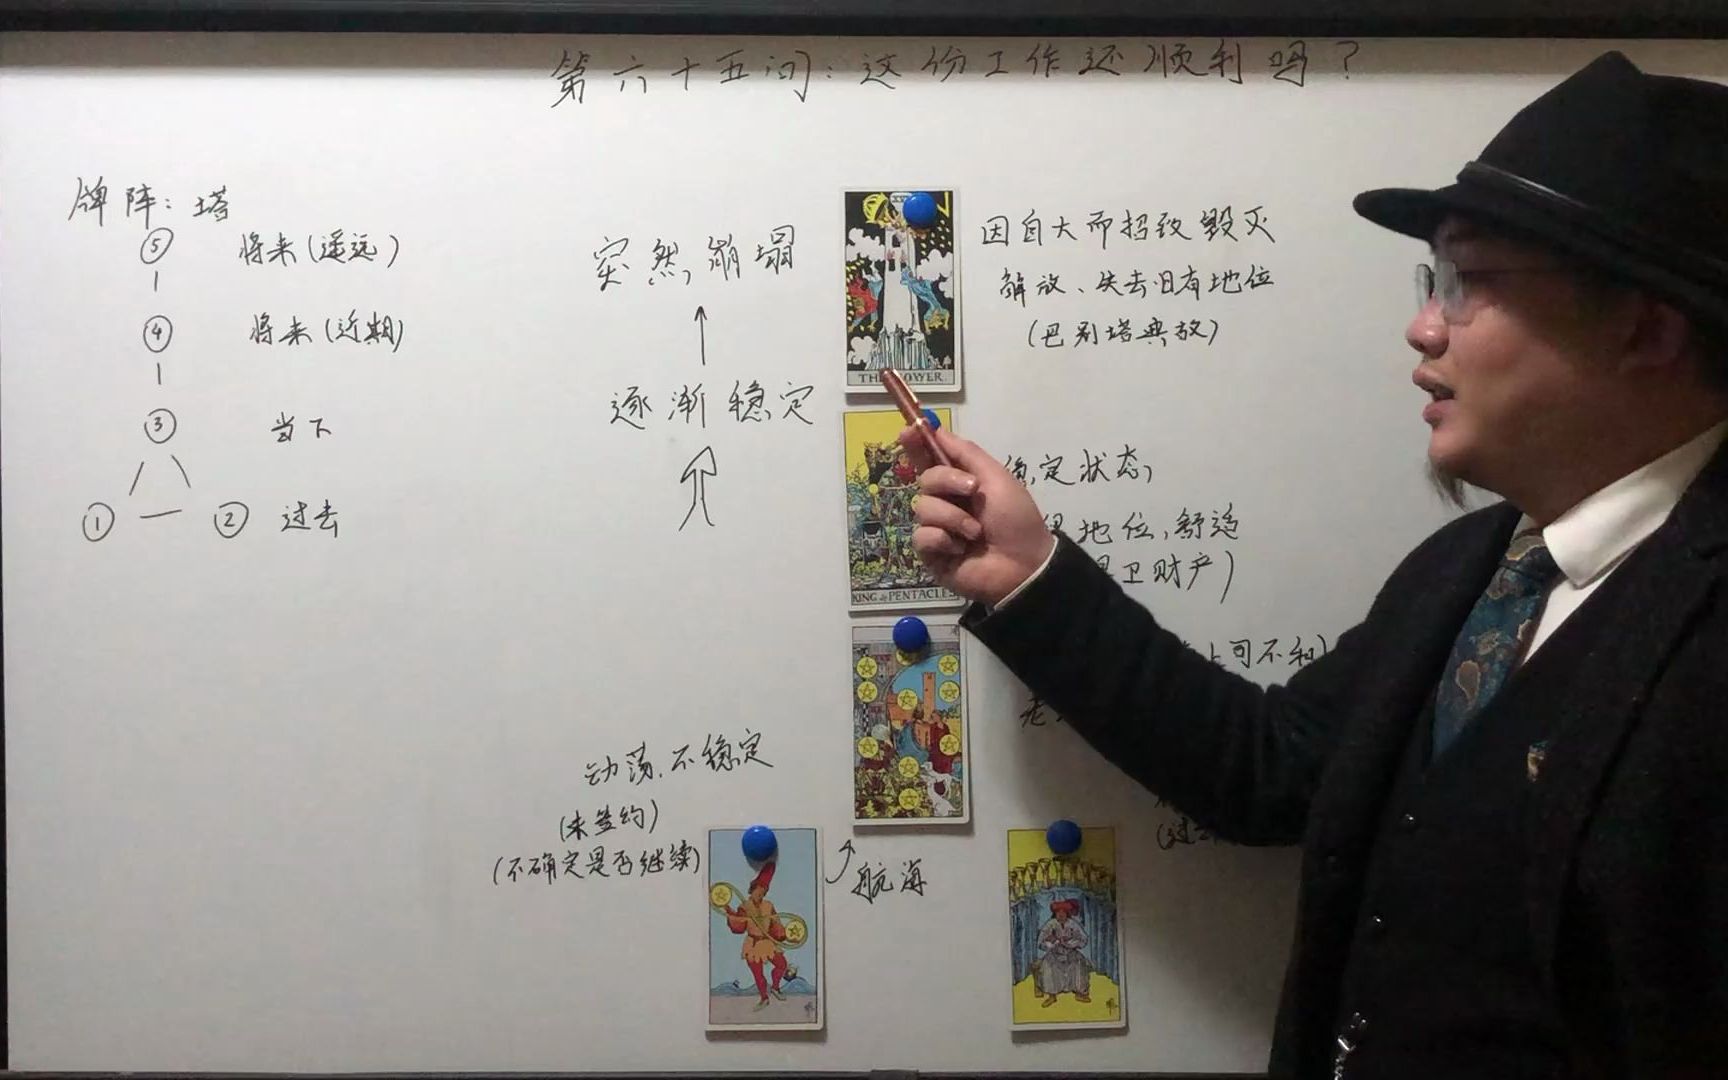 第六十五问：这份工作还顺利吗？
牌阵：塔
⑤ 将来(遥远)
④ 将来(近期)
③ 当下
① ② 过去
突然,崩塌
逐渐稳定
动荡,不稳定
(未签约)
(不确定是否继续)
航海
THE TOWER
因自大而招致毁灭
解放、失去旧有地位
(巴别塔典故)
KING of PENTACLES
稳定状态,
地位,舒适
卫财产)
上可不利)